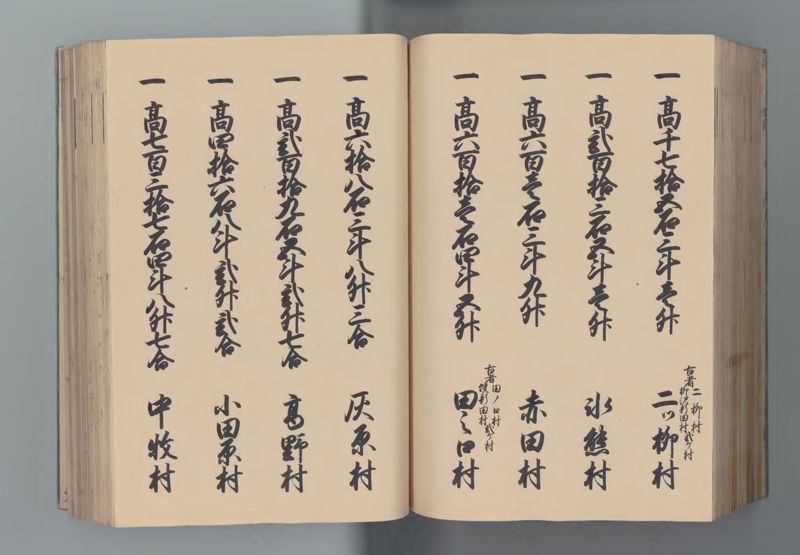 一 高千七拾五石三斗壱升
古者 二柳村
柳沢新田村 弐ヶ村
二ッ柳村
一 高弐百拾三石五斗壱升
氷熊村
一 高六百壱石三斗九升
赤田村
一 高六百拾壱石四斗五升
古者 田ノ口村
新田村 弐ヶ村
田之口村
一 高六拾八石三斗八升三合
灰原村
一 高弐百拾九石五斗弐升七合
高野村
一 高四拾六石八斗弐升弐合
小田原村
一 高七百三拾七石四斗八升七合
中牧村